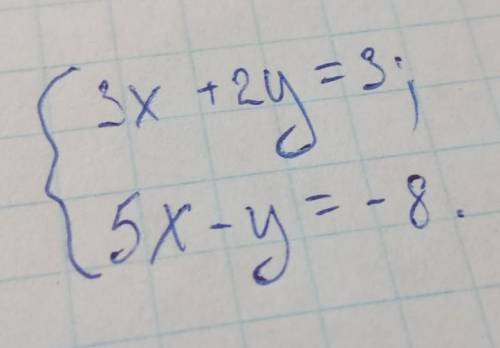 3x + 2y = 3;
5x - y = - 8.